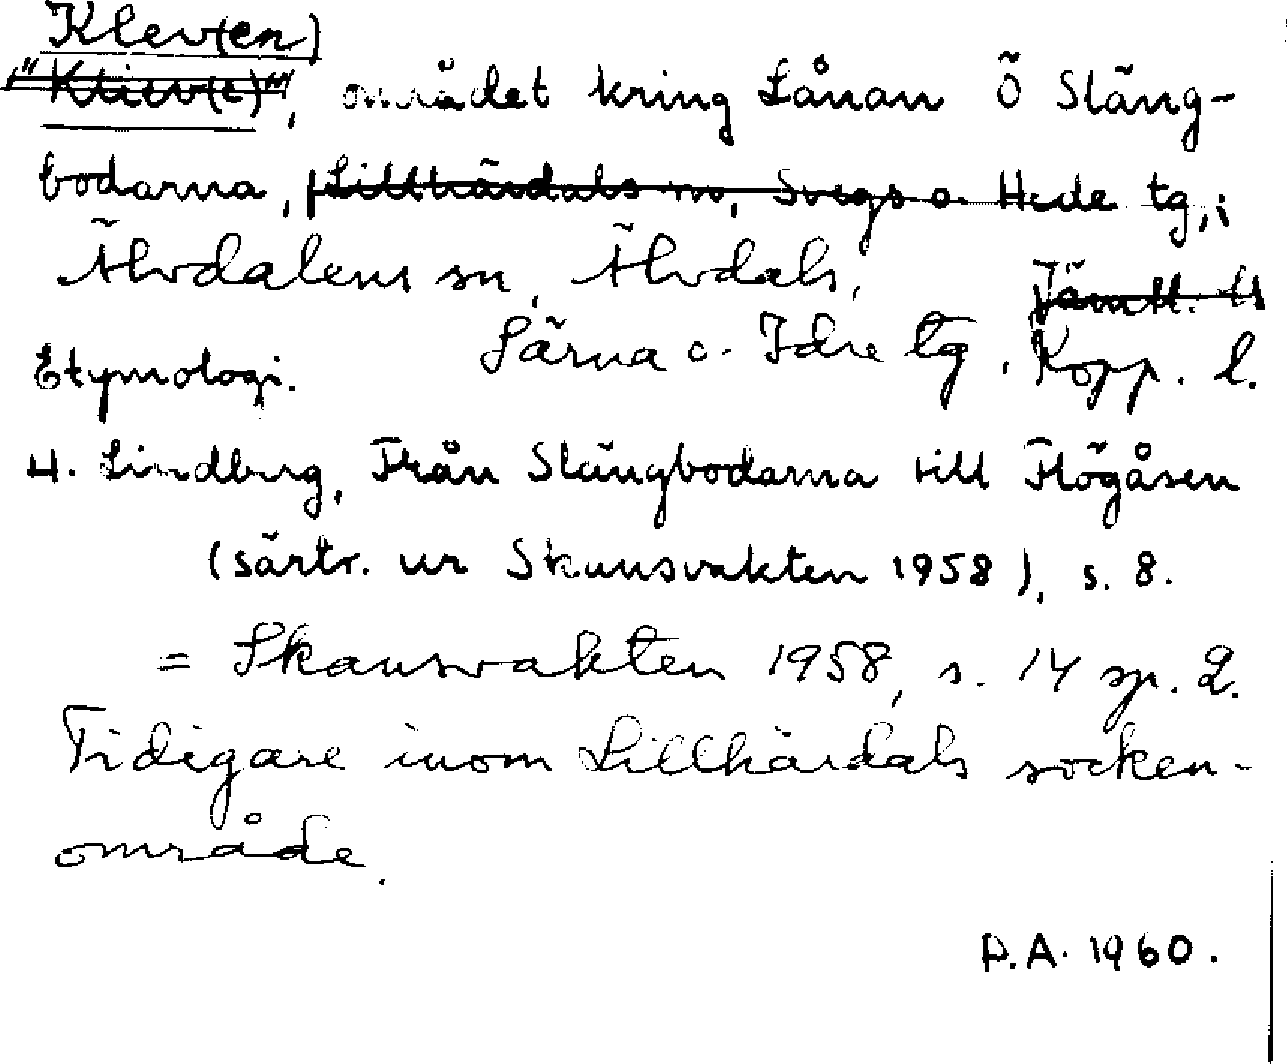 Klev(en)
"Kliev(e)", området kring Lånan Ö Släng-
bodarna, Lillhärdals sn, Svegs o. Hede tg, i
Älvdalens sn, Älvdals, Jämtl. ls
Särna o. Idre tg, Kopp. l.
Etymologi.
H. Lindberg, Från Slängbodarna till Flögåsen
(särtr. ur Skansvakten 1958), s. 8.
= Skansvakten 1958, s. 14 sp. 2.
Tidigare inom Lillhärdals socken-
område.
D.A. 1960.